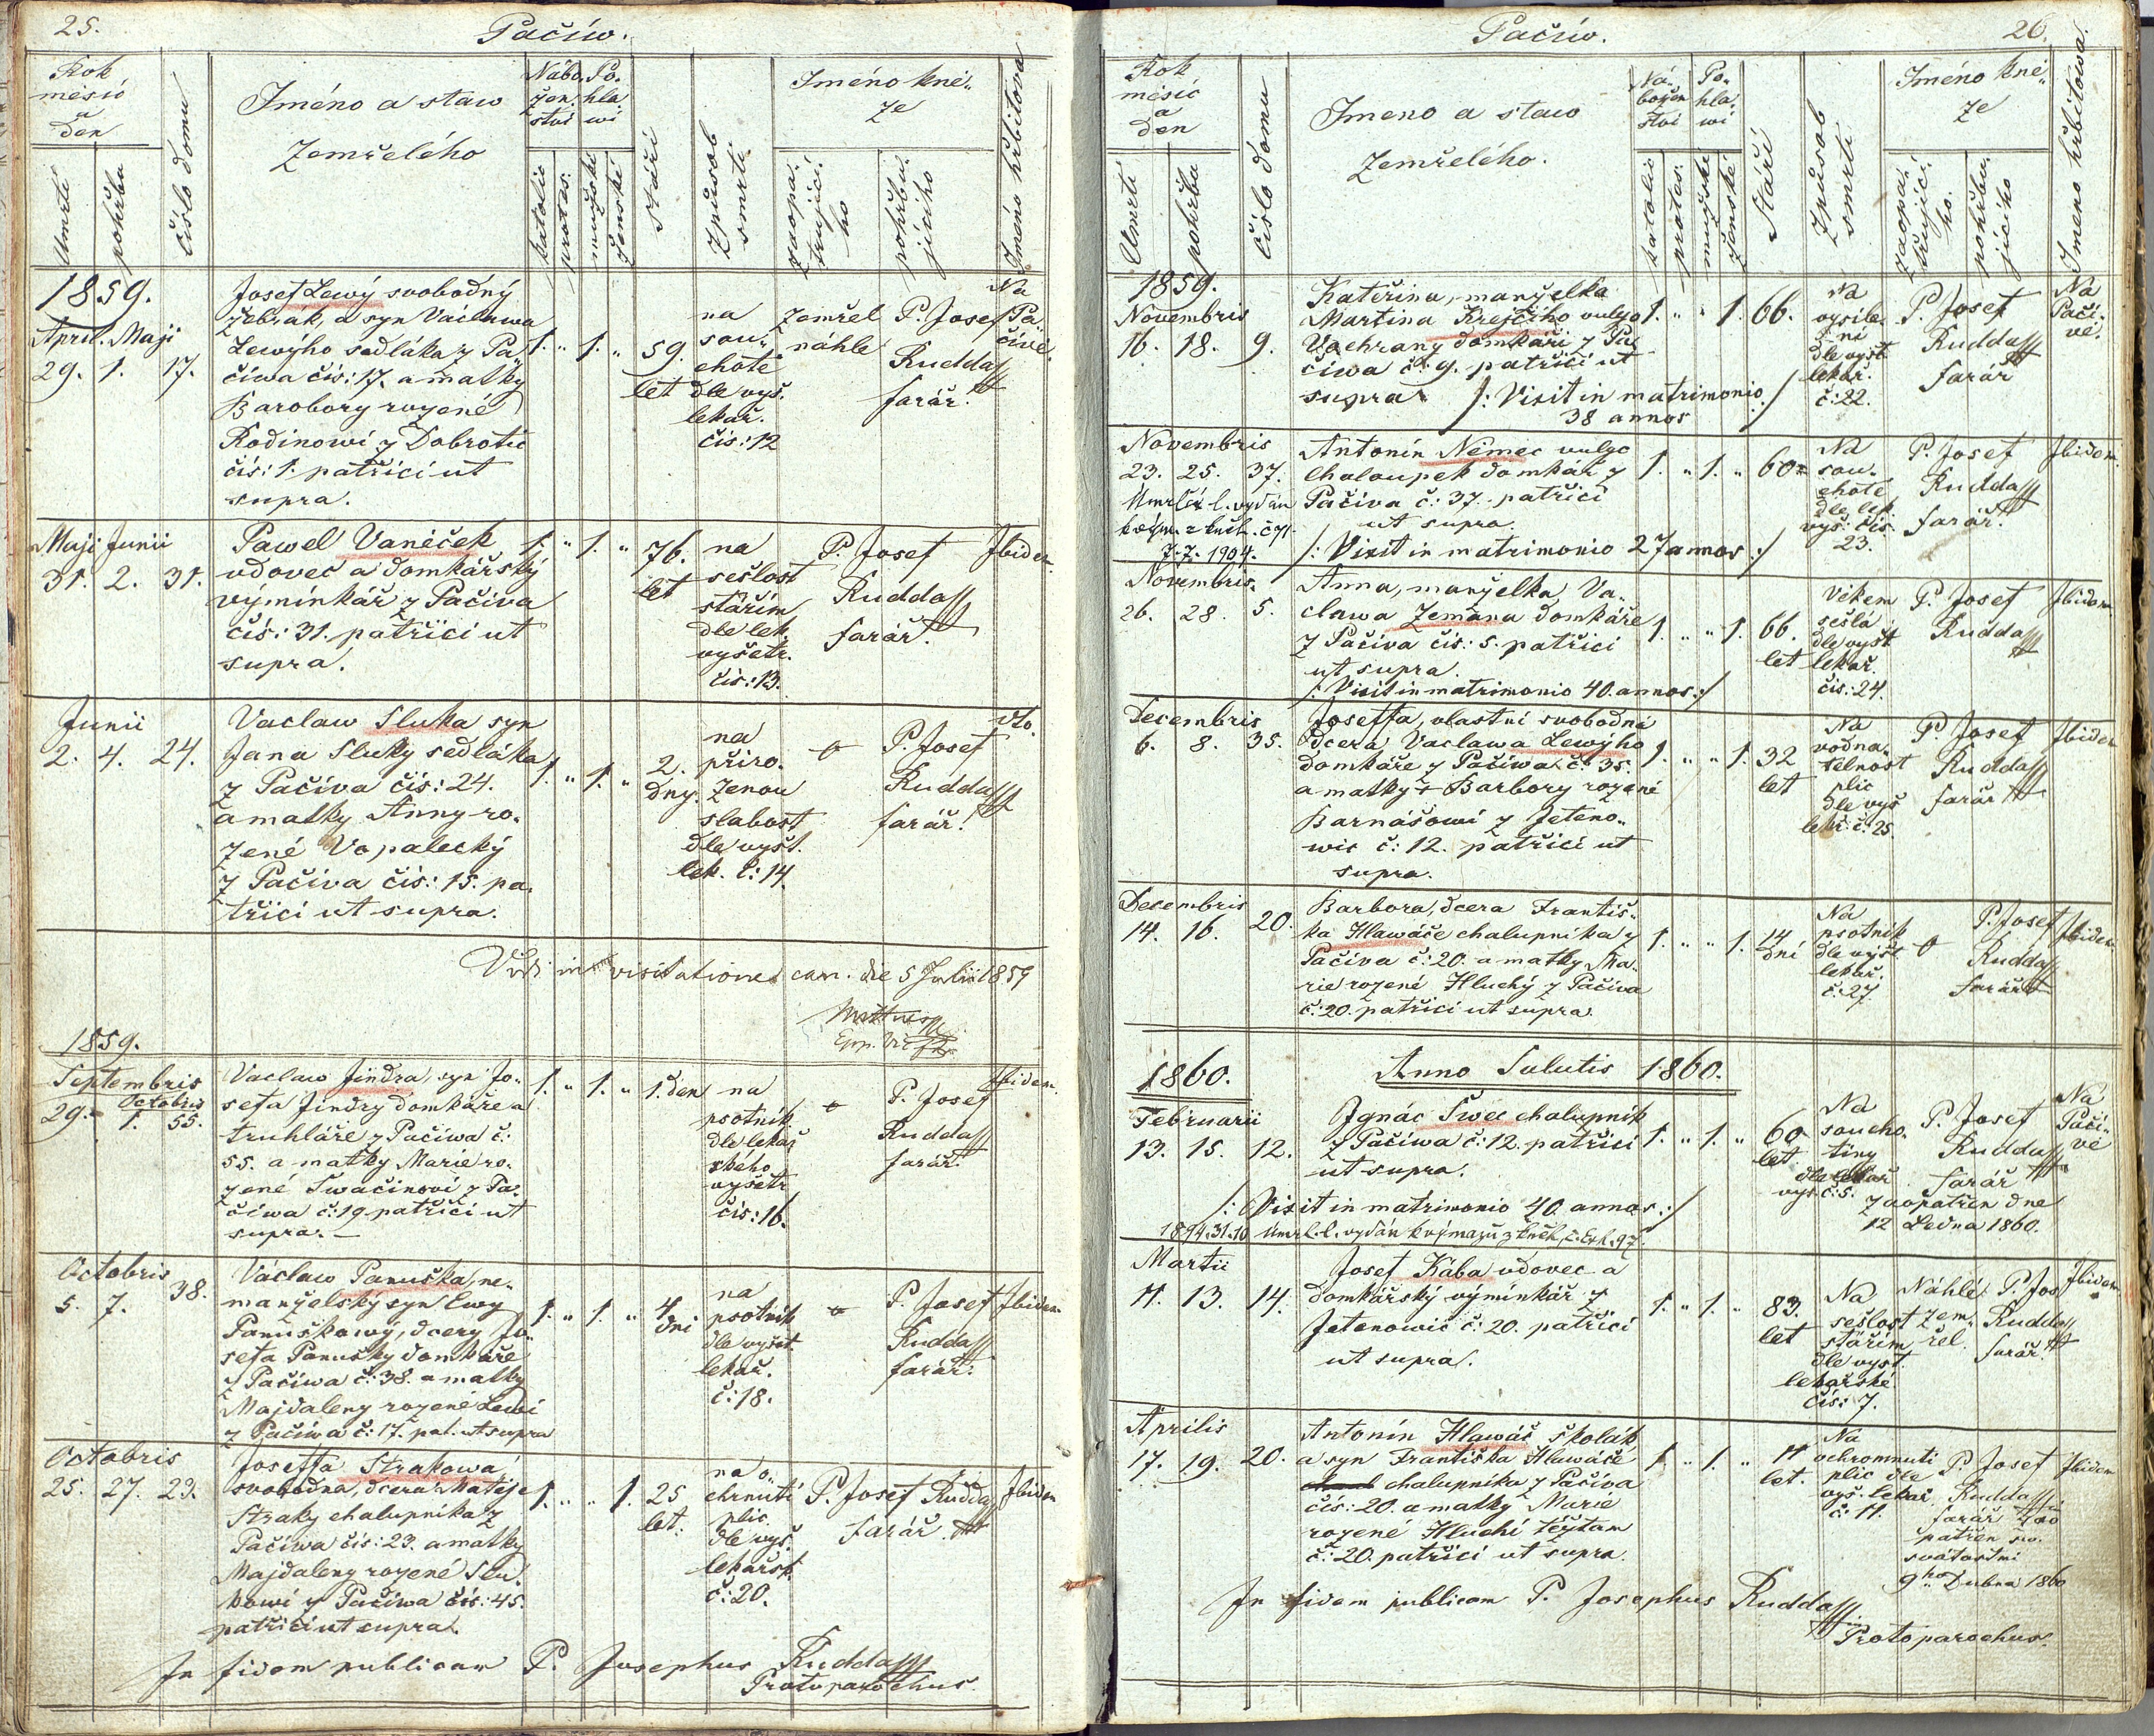 25.
Pačiw.
Rok
měsíc
a
den
Umrtí
pohřbu
číslo domu
Jméno a staw
Zemřelého
Nábo
žen
ství
Po.
hla.
wí
katolic
protes.
mužské
ženské
stáří
Způsob
smrti
Jméno kně„
ze
zaopa.
třujicí.
ho
pohřbu.
jícího
Jméno hřbitowa
1859.
April. Maji
29. 1. 17.
Josef Lewý svobodný
žebrák, a syn Vaclawa
Lewýho sedláka z Pa„
čiwa čís: 17. a matky
Barobory rozené
Rodinowi z Dobrotic
čís: 1. patřící ut
supra.
1. „ 1. „
59.
let
na
sou„
chotě
dle vyš.
lekař.
čís: 12
zemřel
náhle
P. Josef
Rudda
farář.
Na
Pa„
čivě.
Maji Junii
31. 2. 31.
Pawel Vaněček
vdovec a domkářský
výminkář z Pačiva
čís: 31. patřící ut
supra.
1. „ 1. „
76.
let
na
sešlost
stářím
dle lek.
vyšetr.
čís: 13.
P. Josef
Rudda
farář.
Ibidem.
Junii
2. 4. 24.
Vaclaw Sluka syn
Jana Sluky sedláka
z Pačiva čís: 24.
a matky Anny ro.
zené Vopalecký
z Pačiva čís: 15. pa.
třící ut supra.
1. „ 1. „
2.
dny.
na
přiro.
zenou
slabost
dle vyšt.
lek. č: 14.
P. Josef
Rudda
farář.
dto.
Vidi in visitatione can. die 5 Julii 1859
1859.
Septembris
Octobris
29. 1. 55.
Vaclaw Jindra, syn Jo„
sefa Jindry domkáře a
truhláře z Pačiwa č:
55. a matky Marie ro.
zené Swačinovi z Pa.
čiwa č: 19. patřící ut
supra. —
1. „ 1. „
1. den
na
psotník
dle lekař
ského
vyšetr
čís: 16.
P. Josef
Rudda
farář.
Ibidem.
Octobris
5. 7. 38.
Václaw Panuška, ne.
manželský syn Ewy
Panuškowý, dcery Jo„
sefa Panušky domkáře
z Pačiwa č: 38. a matky
Majdaleny rozené Lewi
z Pačiwa č: 17. pat. ut supra
1. „ 1. „
4
dni
na
psotník
dle vyšet.
lekař.
č: 18.
P. Josef
Rudda
farář.
Ibidem
Octobris
25. 27. 23.
Josefa Strakowa
svobodna, dcera Matěje
Straky chalupníka z
Pačiwa čís: 23. a matky
Majdaleny rozené Slu.
kowi z Pačiwa čís: 45.
patřící ut supra.
1. „ „ 1.
25
let.
na o„
chrnutí
plic.
dle vyš.
lekařsk.
č: 20.
P. Josef Rudda
farář.
Ibidem
In fidem publicam P. Josephus Rudda
Protoparochus.
Pačiw.
26.
Rok
měsíc
a
den
Umrtí
pohřbu
číslo domu
Jmeno a staw
Zemřelého.
Ná„
božen
stvi
Po„
hla.
wí
katolic
protes.
mužské
ženské
Stáří
Způsob
smrti
Jméno kně„
ze
zaopa.
třujicí.
ho.
pohřbu.
jícího
Jmeno hřbitowa.
1859.
Novembris
16. 18. 9.
Kateřina, manželka
Martina Krejčího vulgo
Vochrany domkáři z Pa
čiwa č. 9. patřící ut
supra. /: Vixit in matrimonio :/
38 annos
1. „ „ 1.
66.
Na
vysíle.
ní
dle vyšt.
lekař.
č: 22.
P. Josef
Rudda
farář
Na
Pačí„
vě.
Novembris
23. 25. 37.
Umrlčí l. vydán
7.7. 1904.
Antonin Němec vulgo
Chaloupek domkář z
Pačiva č: 37. patřící
ut supra.
/: Vixit in matrimonio 27 annos :/
1. „ 1. „
60
Na
sou.
chotě,
dle lek.
vyš: čís.
23.
P. Josef
Rudda
farář.
Ibidem.
Novembris.
26. 28. 5.
Anna, manželka Va.
clawa Zemana domkáře
z Pačiva čís: 5. patřící
ut supra.
/: Vixit in matrimonio 40. annos :/
1. „ „ 1.
66.
let
Věkem
sešlá
dle vyšt
lekař.
čís: 24.
P. Josef
Rudda
Ibidem
Decembris
6. 8. 35.
Joseffa, vlastní svobodná
dcera Vaclawa Lewýho
domkáře z Pačiwa č: 35.
a matky Barbory rozené
Barnášowi z Jeteno„
wic č: 12. patřící ut
supra.
1. „ „ 1.
32
let
Na
vodna.
telnost
plic
dle vyš
lekř. č: 25.
P. Josef
Rudda
farář
Ibidem
Decembris
14. 16. 20.
Barbora, dcera Františ„
ka Hlawáče chalupníka z
Pačiva č: 20. a matky Ma.
rie rozené Hluchý z Pačiva
č: 20. patřící ut supra.
1. „ „ 1.
14
dní
Na
psotnik
dle vyšt.
lekař.
č: 27.
P. Josef
Rudda
farář
Ibidem
1860.
Anno Salutis 1860.
Februarii
13. 15. 12.
Ignác Šwec chalupník
z Pačiwa č: 12. patřící
ut supra.
/: Vixit in matrimonio 40 annos :/
1894.31.10 Umrl. l. vydán k výmazu z knih, č. exh. 97.
1. „ 1. „
60
let
Na
soucho.
tiny
dle lekař
vyš. č: 5.
P. Josef
Rudda
farář
zaopatřen dne
12 Ledna 1860.
Na
Pačí„
vě
Martii
11. 13. 14.
Josef Kába vdovec a
domkářský výminkář z
Jetenowic č: 20. patřící
ut supra.
1. „ 1. „
83.
let
Na
sešlost
stářím
dle vyšt.
lekařské
čís: 7.
Náhlé
zem„
řel.
P. Jos
Rudda
farář.
Ibidem
Aprilis
17. 19. 20.
Antonín Hlawáč školák
a syn Františka Hlawáče
chalupníka z Pačiva
čís: 20. a matky Marie
rozené Hluchí téžtam
č: 20. patřící ut supra.
1. „ 1. „
11
let.
Na
ochromnutí
plic dle
vyš. lekař.
č: 11.
P. Josef
Rudda
farář zao
patřen sv.
svátostmi
9ho Dubna 1860
Ibidem
In fidem publicam P. Josephus Rudda
Protoparochus.